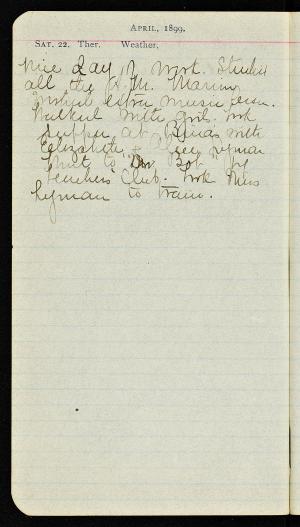 APRIL, 1899.
SAT. 22. Ther. Weather,
Nice day of work. Studied
all the A.M. Marion
extra music lesson.
Walked with girls. Took
supper at with
Elizabeth & Alice Lyman
Went to "Bob" by
Teachers Club. Took Miss
Lyman to train.